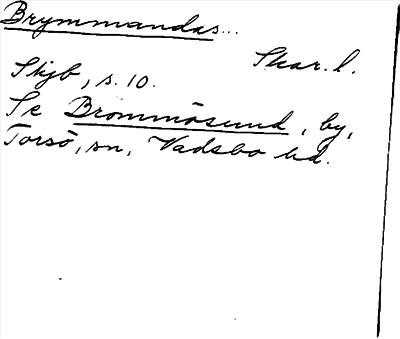 Brymmandas...
Skar. l.
Skjb, s. 10.
Se Brommösund, by,
Torsö, sn, Vadsbo hd.